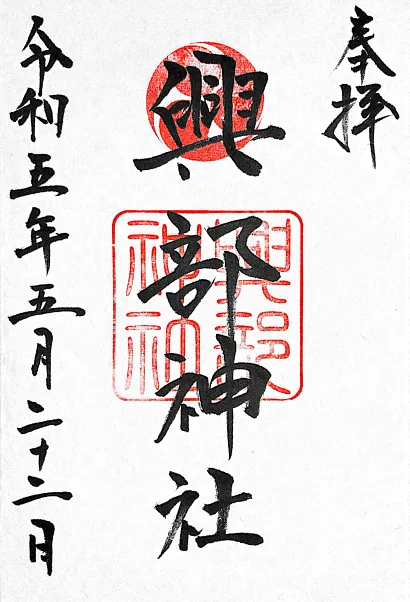 奉拝
興部神社
興部神社
令和五年五月二十二日